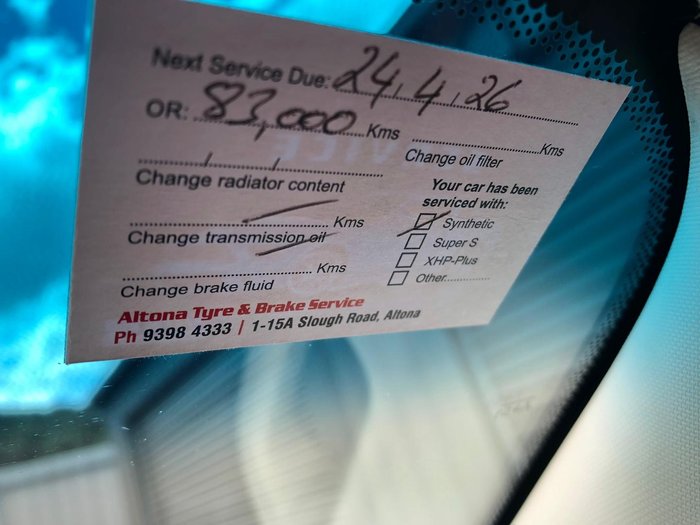 Next Service Due: 24,4,26
OR: 83,000 Kms
Kms
Change oil filter
Change radiator content
Your car has been
serviced with:
Kms
Change transmission oil
Synthetic
Super S
XHP-Plus
Other
Kms
Change brake fluid
Altona Tyre & Brake Service
Ph 9398 4333 | 1-15A Slough Road, Altona